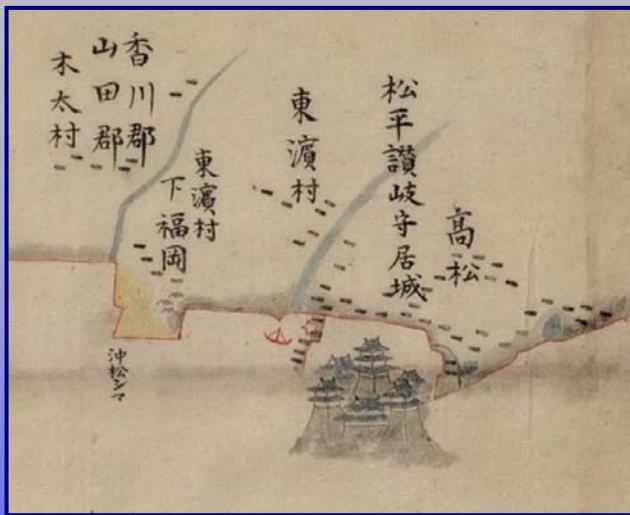 高松
松平讃岐守居城
東濵村
東濵村
下福岡
香川郡
山田郡
木太村
沖松シマ